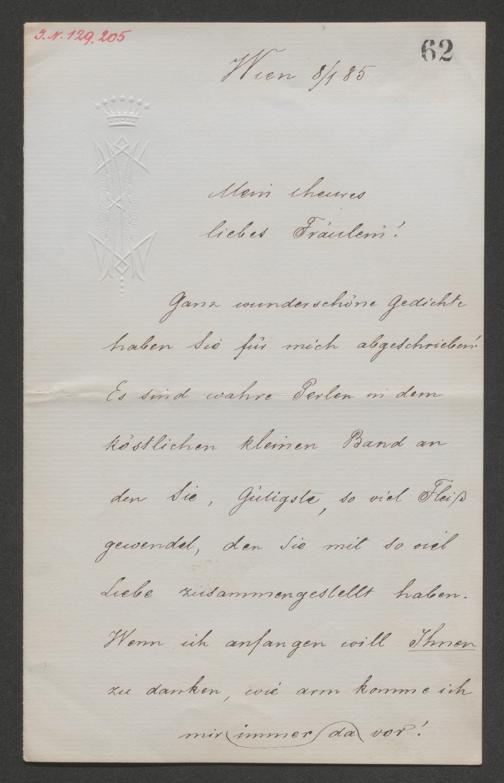 J.N. 129.205
62
Wien 8/1 85
Mein theures
liebes Fräulein!
Ganz wunderschöne Gedichte
haben Sie für mich abgeschrieben!
Es sind wahre Perlen in dem
köstlichen kleinen Band an
den Sie, Gütigste, so viel Fleiß
gewendet, den Sie mit so viel
Liebe zusammengestellt haben.
Wenn ich anfangen will Ihnen
zu danken, wie arm komme ich
mir immer da vor!